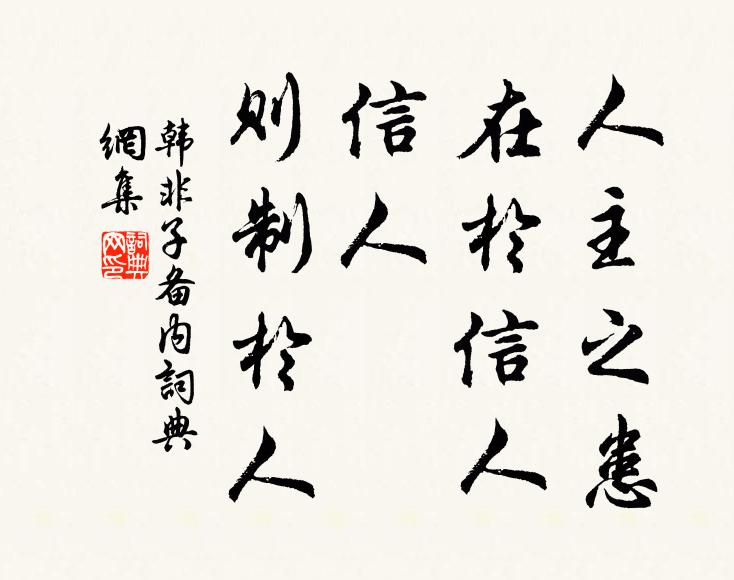 人主之患
在於信人
信人
則制於人
韩非子备内詞典
網集
詞典
网印